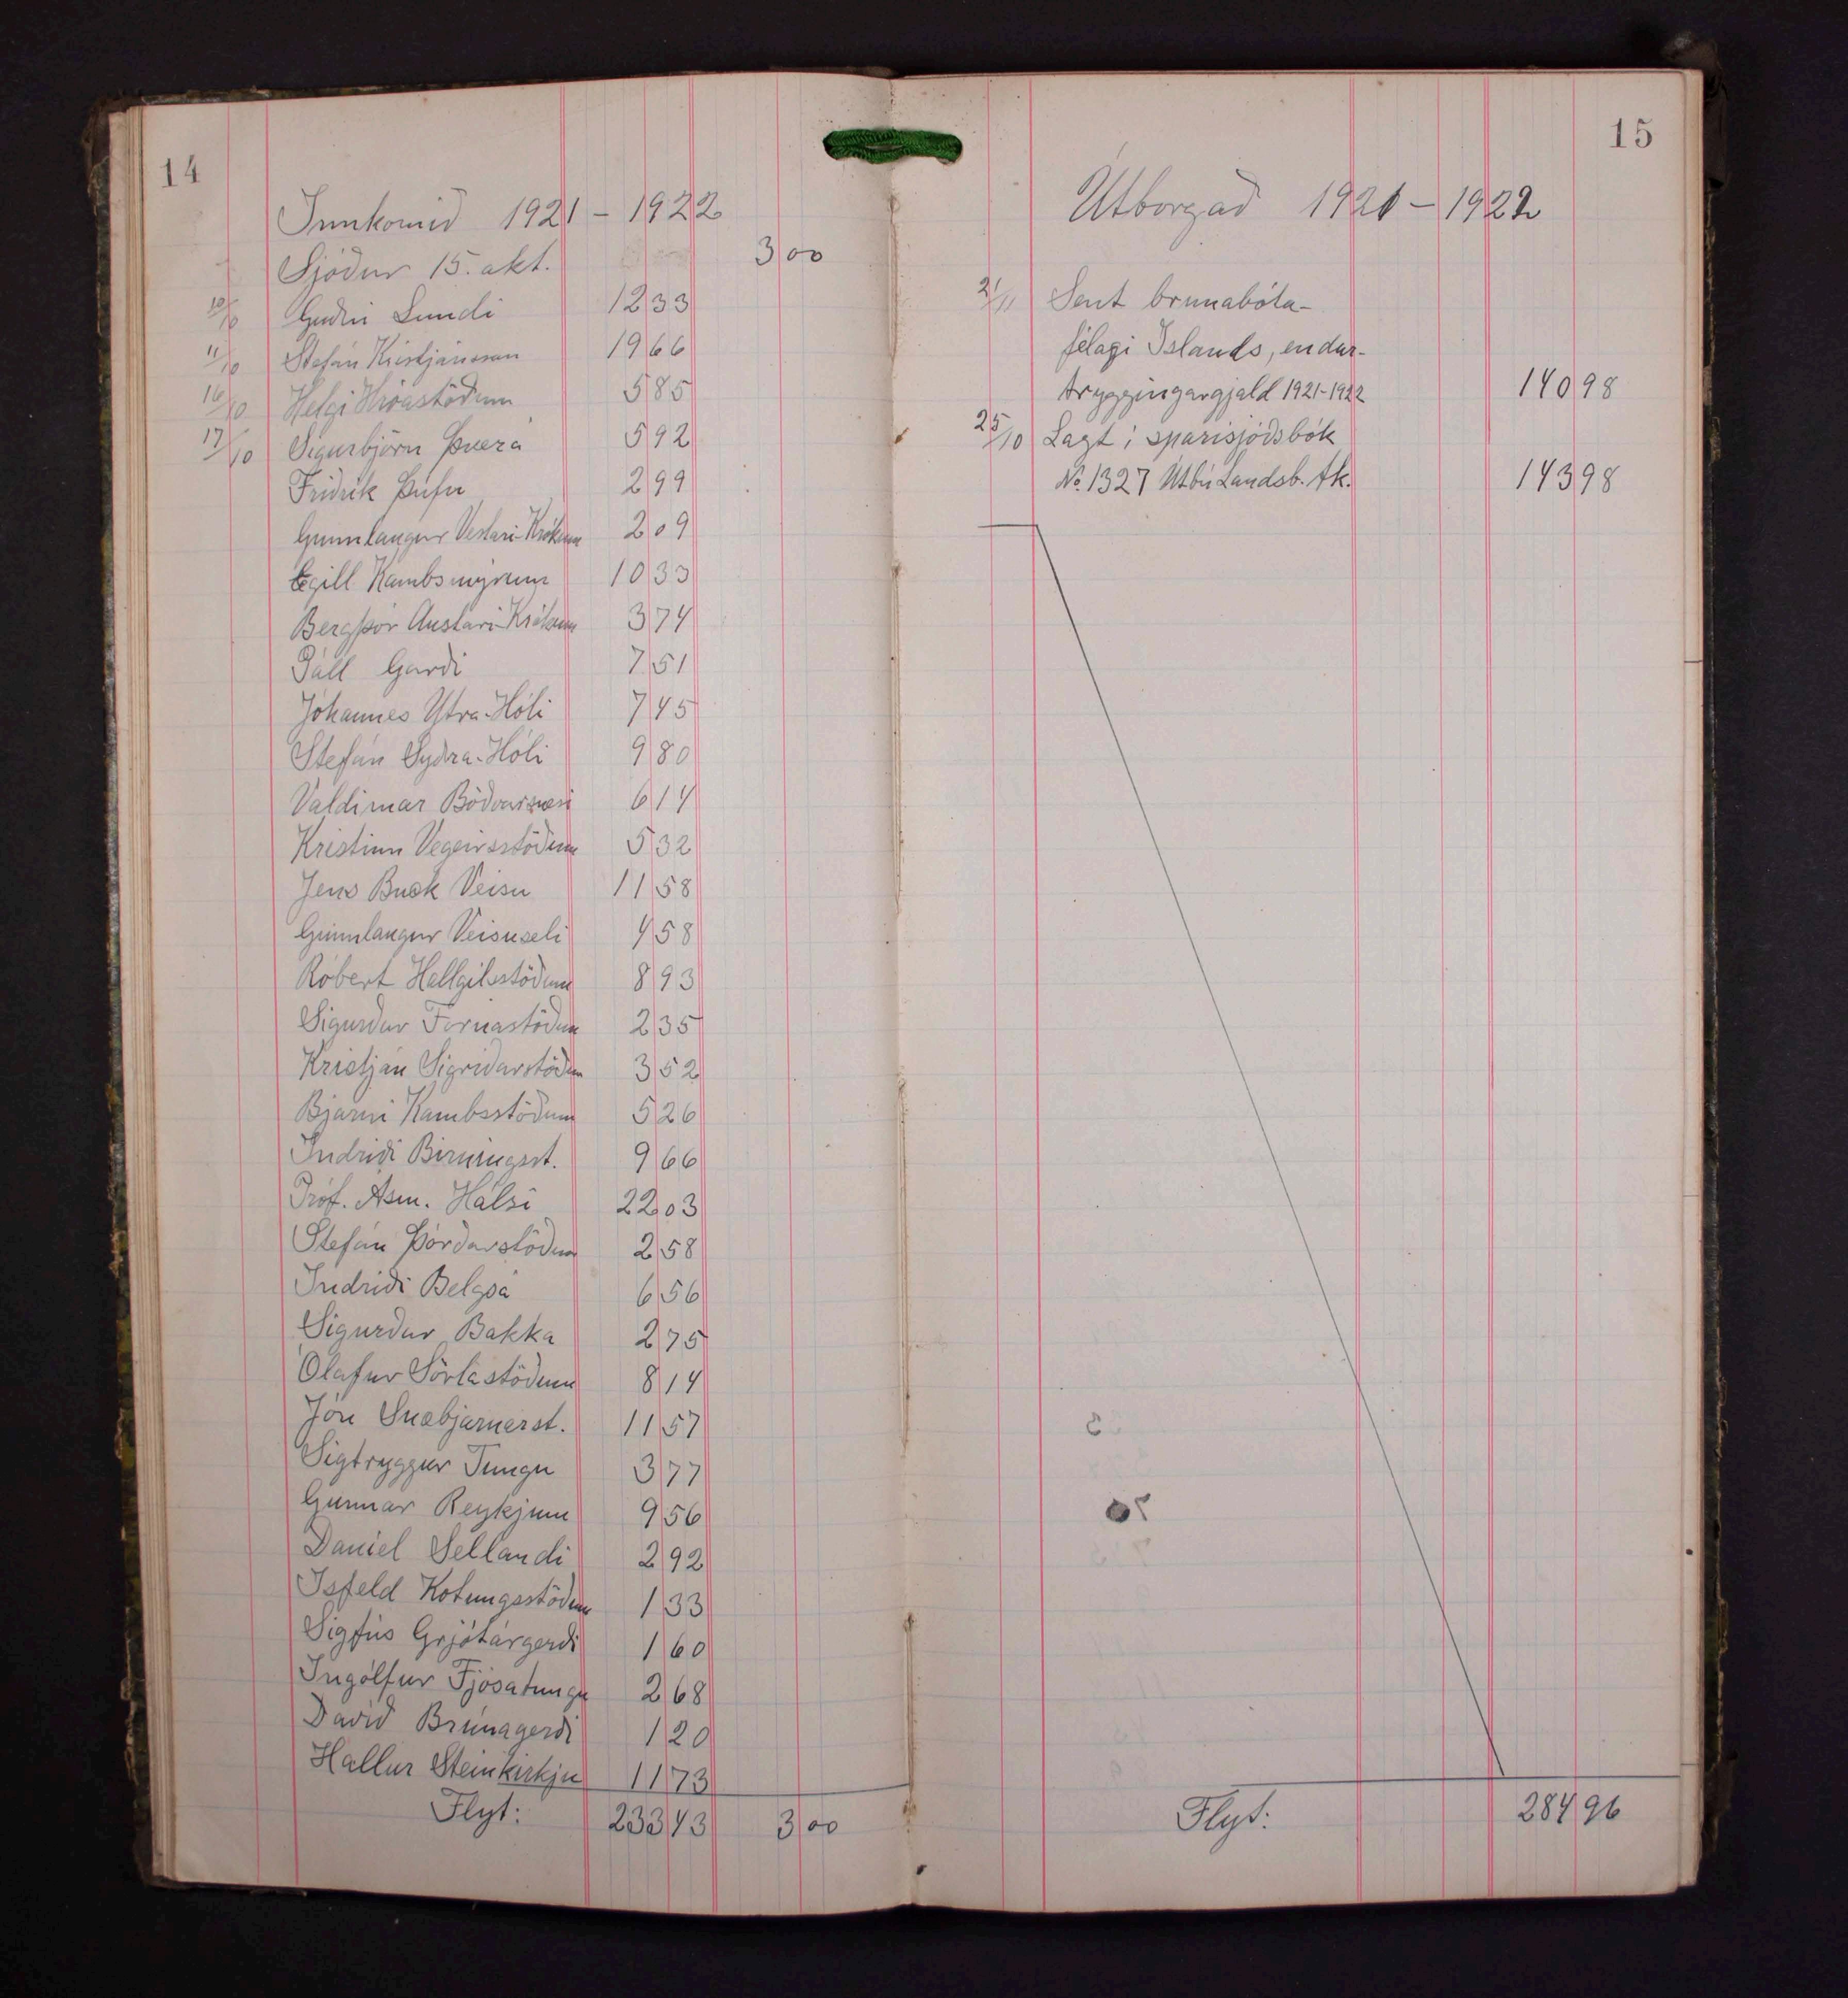 14
Innkomið 1921 - 1922
Sjóður 15. okt. 3 00
10/10 Guðni Lundi 12 33
11/10 Stefán Kristjánsson 19 66
16/10 Helgi Hróastöðum 5 85
17/10 Sigurbjörn Þverá 5 92
Friðrik Þúfu 2 99
Gunnlaugur Vestari-Krókum 2 09
Egill Kambsmýrum 10 33
Bergþór Austari-Krókum 3 74
Páll Garði 7 51
Jóhannes Ytra-Hóli 7 45
Stefán Syðra-Hóli 9 80
Valdimar Böðvarsnesi 6 14
Kristinn Vegeirsstöðum 5 32
Jens Buck Veisu 11 58
Gunnlaugur Veisuseli 4 58
Róbert Hallgilsstöðum 8 93
Sigurður Fornastöðum 2 35
Kristján Sigríðarstöðum 3 52
Bjarni Kambsstöðum 5 26
Indriði Birningsst. 9 66
Próf. Ásm. Hálsi 22 03
Stefán Þórðarstöðum 2 58
Indriði Belgsá 6 56
Sigurður Bakka 2 75
Ólafur Sörlastöðum 8 14
Jón Snæbjarnarst. 11 57
Sigtryggur Tungu 3 77
Gunnar Reykjum 9 56
Daníel Sellandi 2 92
Ísfeld Kotungsstöðum 1 33
Sigfús Grjótárgerði 1 60
Ingólfur Fjósatungu 2 68
Davíð Brúnagerði 1 20
Hallur Steinkirkju 11 73
Flyt: 233 43 3 00
15
Útborgað 1921 - 1922
21/11 Sent brunabóta-
félagi Íslands, endur-
tryggingargjald 1921-1922 140 98
25/10 Lagt í sparisjóðsbók
No. 1327 Útbú Landsb. Ak. 143 98
Flyt: 284 96